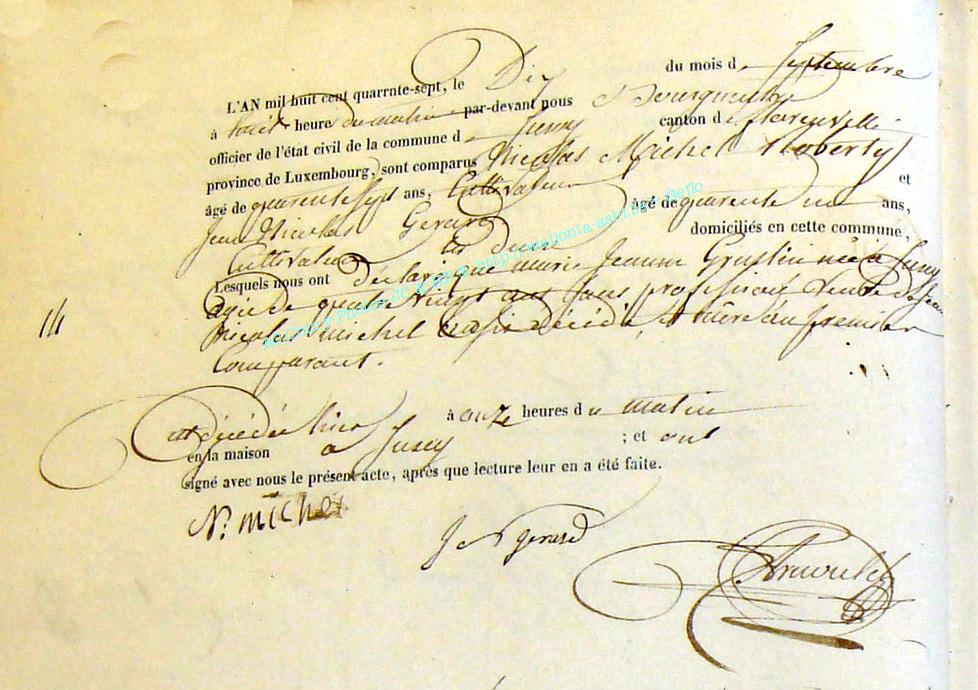 L'AN mil huit cent quarrnte-sept, le Dix du mois de Septembre
à huit heure du matin par-devant nous
officier de l'état civil de la commune de Jusey canton de
province de Luxembourg, sont comparus Nicolas Michel
âgé de quarente sept ans, Cultivateur et
Jean Nicolas Gerard âgé de quarente un ans,
Cultivateur domiciliés en cette commune,
Lesquels nous ont déclaré que Marie Jeanne née à Jusey
agée de quatre vingt ans sans profession veuve de Jean
Nicolas Michel décédé et mère au premier
Comparant.
14
est décédée hier à onze heures du matin
en la maison à Jusey ; et ont
signé avec nous le présent acte, après que lecture leur en a été faite.
N. michel
J N gerard